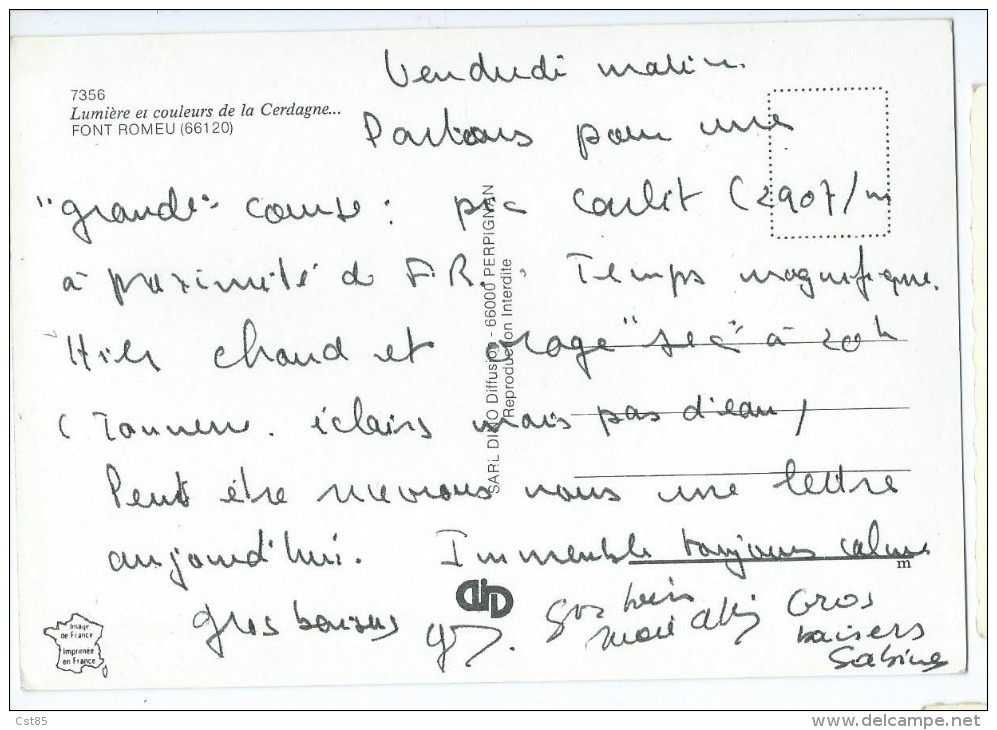 7356
Lumière et couleurs de la Cerdagne...
FONT ROMEU (66120)
Vendredi matin.
Partons pour une
"grande" course : pic Carlit (2907/m
à proximité de F.R. Temps magnifique.
Hier chaud et orage "sec" à 20h
(Tonnerre. éclairs mais pas d'eau)
Peut être recevrons nous une lettre
aujourd'hui. Immeuble toujours calme.
Gros baisers
Gros
baisers
Sabine
SARL DINO Diffusion - 66000 PERPIGNAN
Reproduction Interdite
m
Image
de France
Imprimée
en France
Cst85
www.delcampe.net